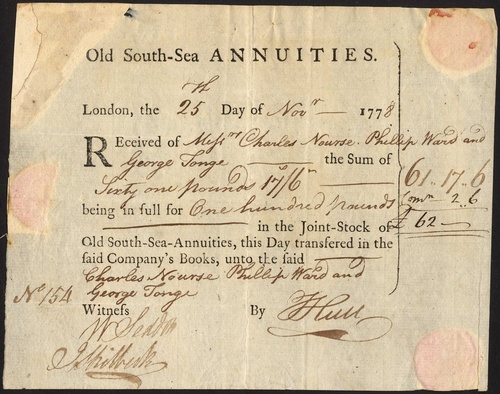 Old South-Sea ANNUITIES.
London, the 25th Day of Novr 1778
Received of Messrs Charles Nourse. Phillip Ward and
George Tonge the Sum of
Sixty one pounds 17/6
61 .. 17 .. 6
being in full for One hundred pounds
Comn 2 .. 6
in the Joint-Stock of
£ 62
Old South-Sea-Annuities, this Day transfered in the
said Company's Books, unto the said
Charles Nourse Phillip Ward and
No 154
George Tonge
Witness By Hull
W Seddon